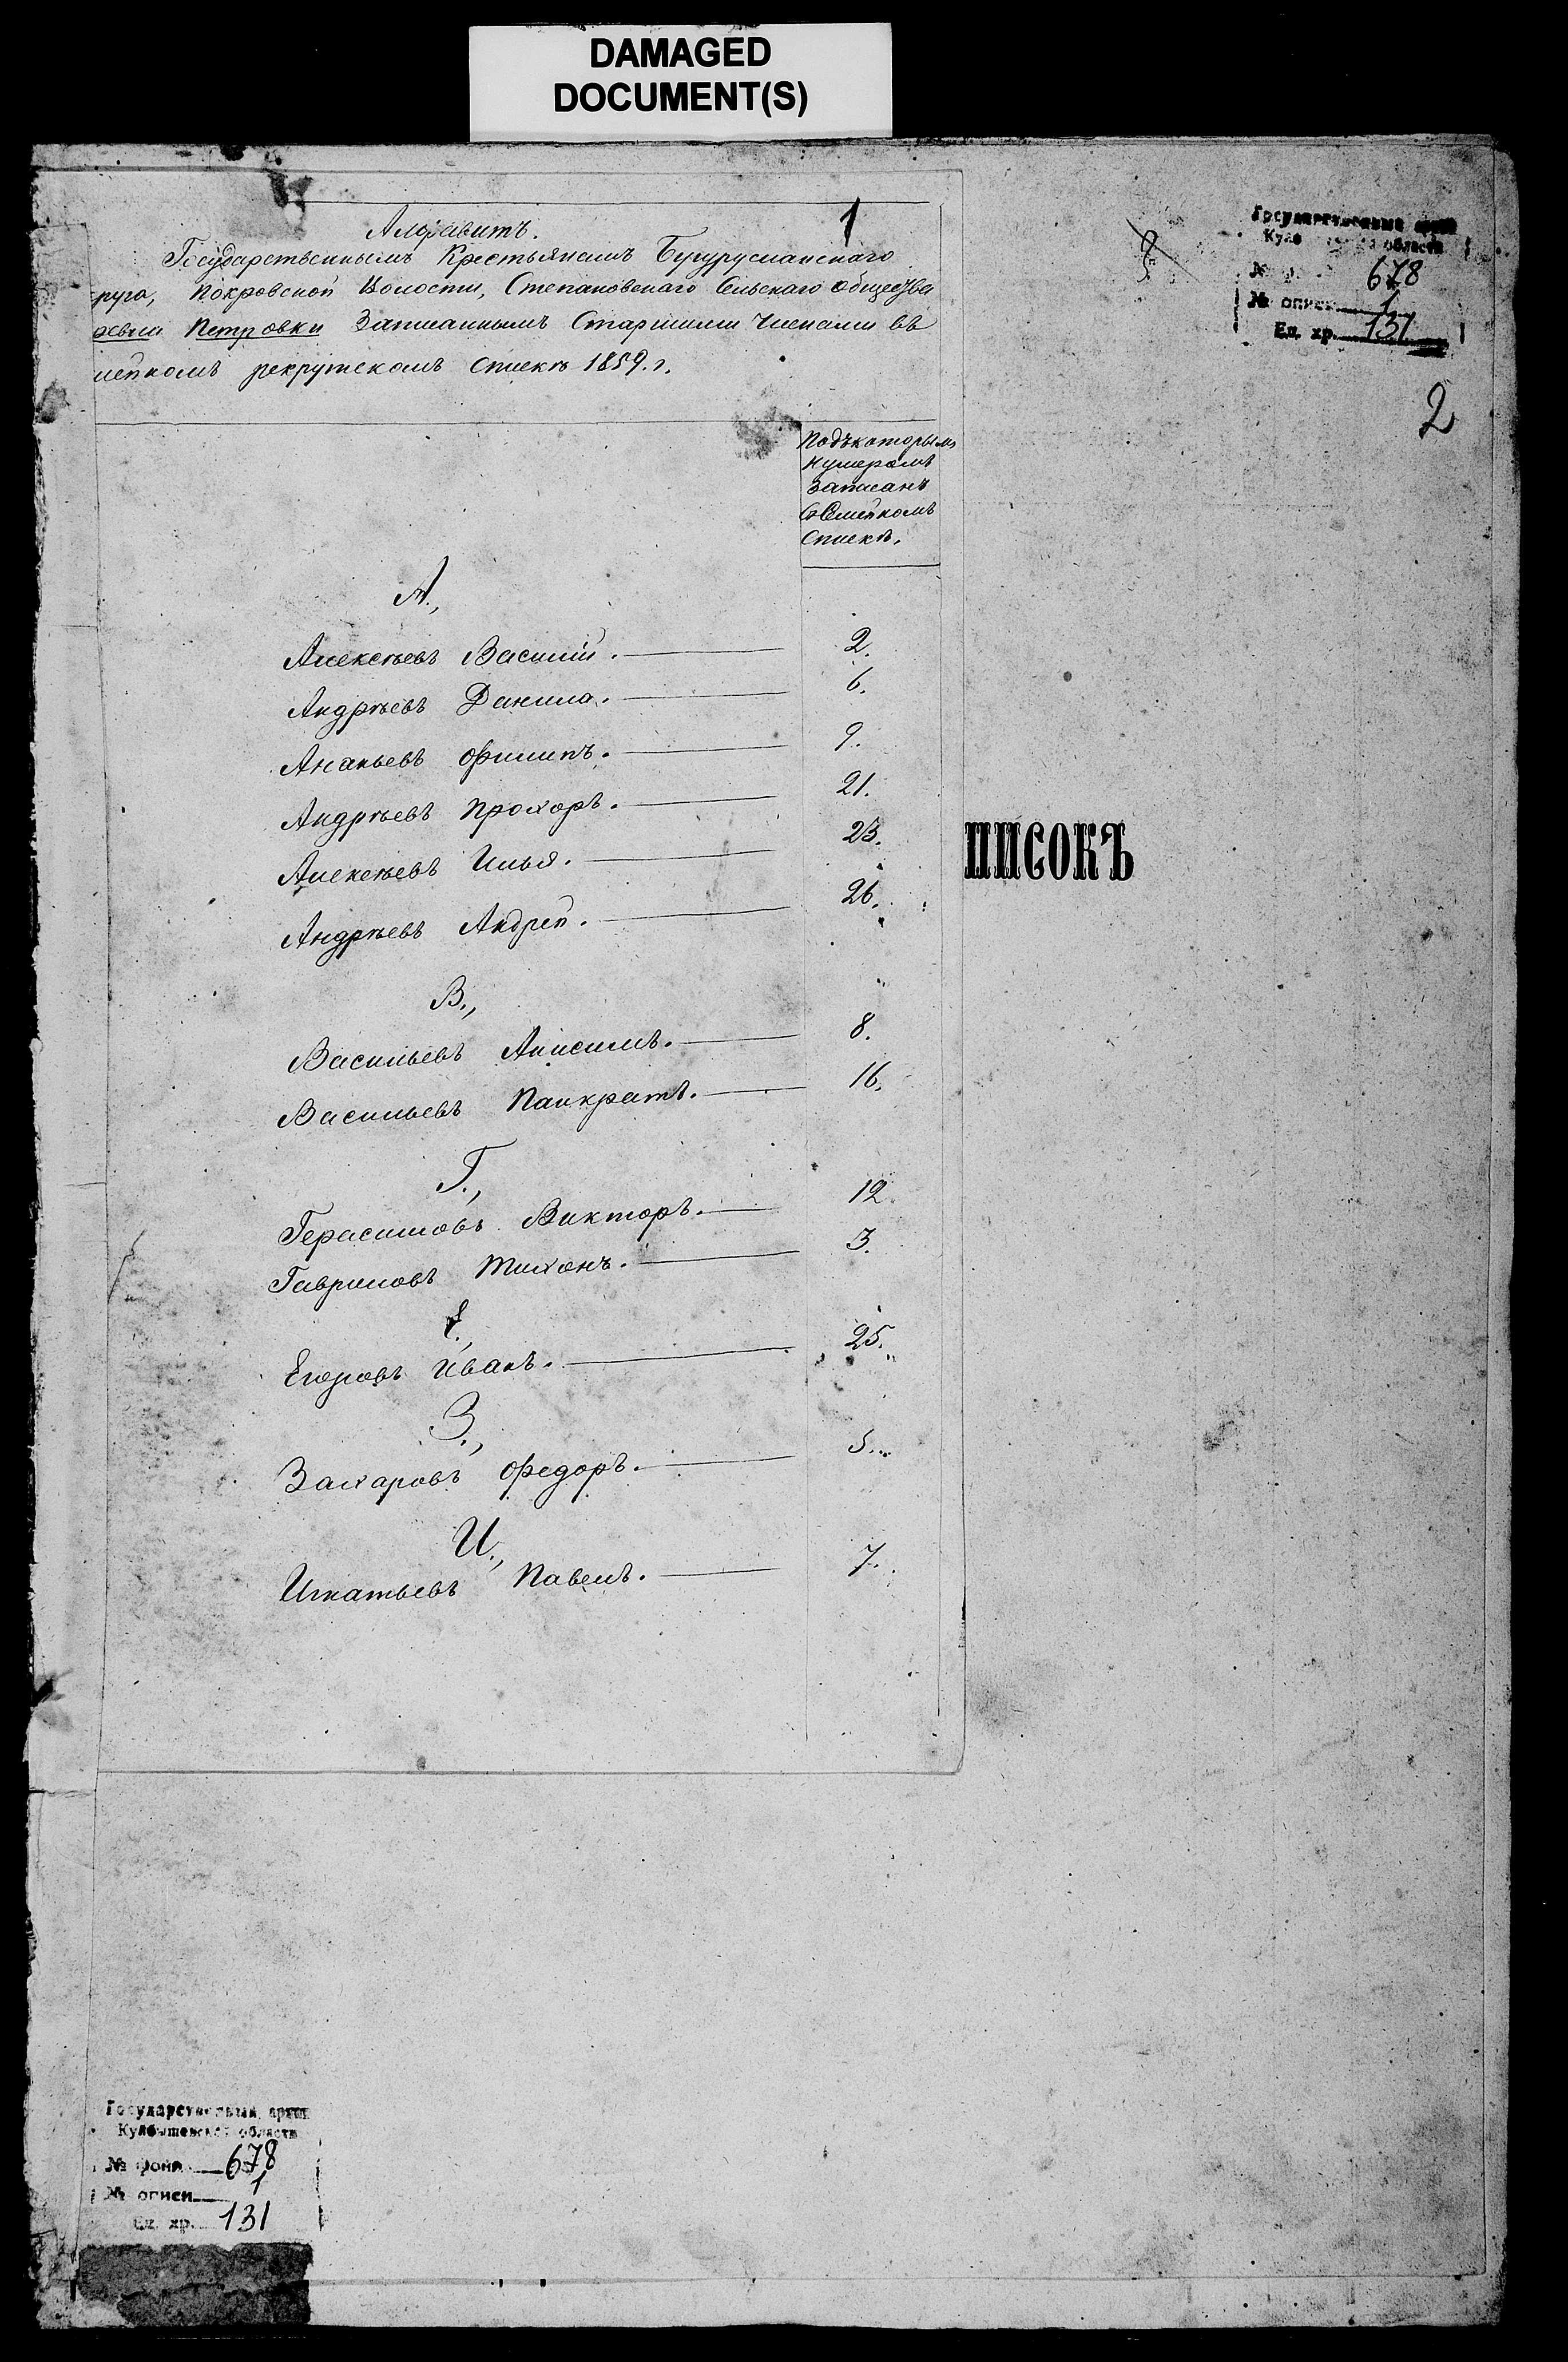 DAMAGED
DOCUMENT(S)
1
Алфавитъ.
Государственнымъ Крестьянамъ Бугурусланскаго
руга, Покровской Волости, Степановскаго Сельскаго общества
Петровки Записаннымъ Старшими Членами въ
мейномъ рекрутскомъ списке 1859. г.
Подъ которымъ
нумеромъ
записанъ
въ Семейномъ
Списке.
А.,
Алексеевъ Василий. 2.
Андреевъ Данила. 6.
Ананьевъ Филипъ. 9.
Андреевъ Прохоръ. 21.
Алексеевъ Илья. 23.
Андреевъ Андрей. 26.
В.,
Васильевъ Анисимъ. 8.
Васильевъ Панкратъ. 16.
Г.,
Герасимовъ Викторъ. 12
Гавриловъ Тихонъ. 3.
Е.,
Егоровъ Иванъ. 25.
З.,
Захаровъ Федоръ. 5.
И.,
Игнатьевъ Павелъ. 7.
ПИСОКЪ
Государственный архив
области
678
№ описи 1
Ед. хр. 131
2
Государственный архив
Куйбышевской области
№ фонд 678
№ описи 1
Ед. хр. 131